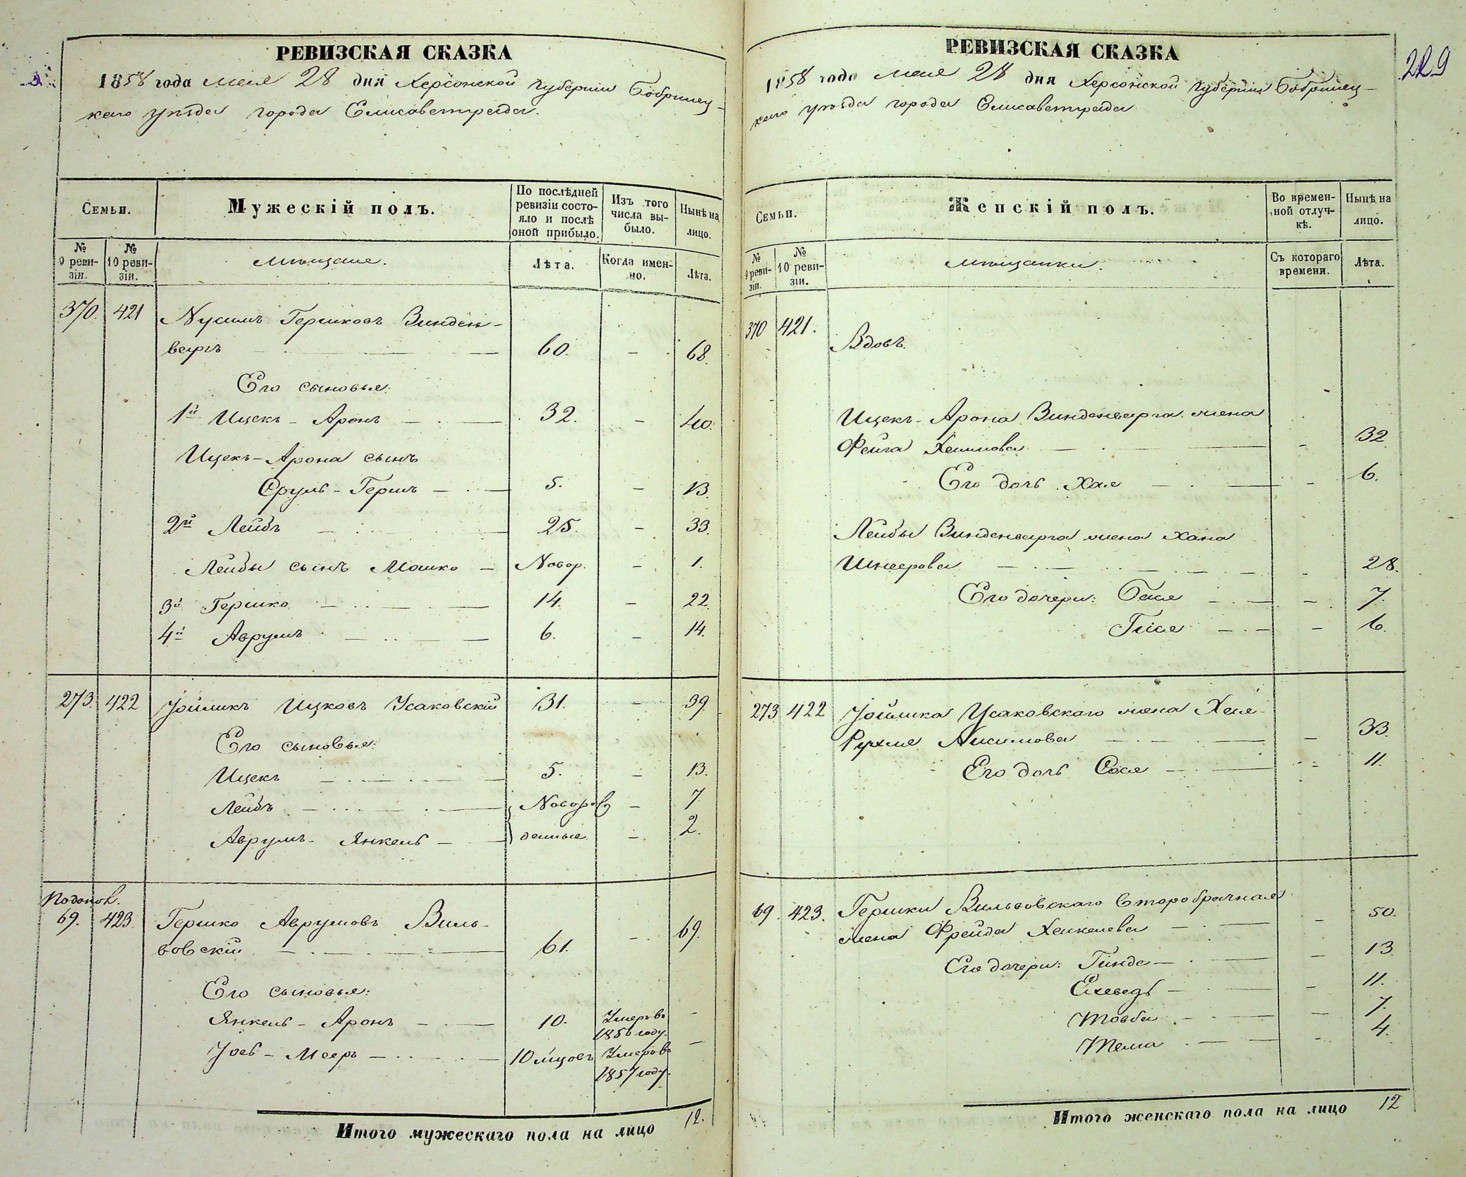 РЕВИЗСКАЯ СКАЗКА
1858 года мая 28 дня Херсонской губернии Бобринец-
каго уѣзда города Елисаветграда.
Семьи.
Мужескій полъ.
По послѣдней
ревизіи состо-
яло и послѣ
оной прибыло.
Изъ того
числа вы-
было.
Нынѣ на
лицо.
№
9 реви-
зіи.
№
10 реви-
зіи.
мѣщане.
Лѣта.
Когда имен-
но.
Лѣта.
370. 421 Нусимъ Гершковъ Винден-
бергъ 60. - 68
Его сыновья:
1й Ицекъ-Аронъ 32. - 40.
Ицекъ-Арона сынъ
Сруль-Гершъ 5. - 13.
2й Лейбъ 25. - 33.
Лейбы сынъ Мошко Новор. - 1.
3й Гершко 14. - 22.
4й Аврумъ 6. - 14.
273. 422 Усаковскій 31. - 39
Его сыновья:
Ицекъ 5. - 13.
Лейбъ Новорож - 7
Аврумъ-Янкель денные - 2.
69. 423. Гершко Аврумовъ Виль-
вовскій 61. - 69.
Его сыновья:
Янкель-Аронъ 10. Умеръ въ
1856 году. -
Іось-Мееръ 10 мцовъ Умеръ въ
1857 году. -
Итого мужескаго пола на лицо 12.
229
РЕВИЗСКАЯ СКАЗКА
1858 года мая 28 дня Херсонской губерніи Бобринец-
каго уѣзда города Елисаветграда
Семьи.
Женскій полъ.
Во времен-
ной отлуч-
кѣ.
Нынѣ на
лицо.
№
9 реви-
зіи.
№
10 реви-
зіи.
мѣщанки.
Съ котораго
времени.
Лѣта.
370 421. Вдовъ.
Ицекъ-Арона Винденберга жена
Фейга Хаимова - 32
Его дочь Хая - 6.
Лейбы Винденберга жена Хана
Шнеерова - 28.
Его дочери: Бася - 7.
Гися - 6.
273 422 Усаковскаго жена Хая
Рухля - 33.
Его дочь Сося - 11.
69. 423. Гершки Вильвовскаго второбрачная
жена Фрейда Хацкелева - 50.
Его дочери: Гинда - 13
Ехеведъ - 11.
Товба - 7.
Тема - 4.
Итого женскаго пола на лицо 12